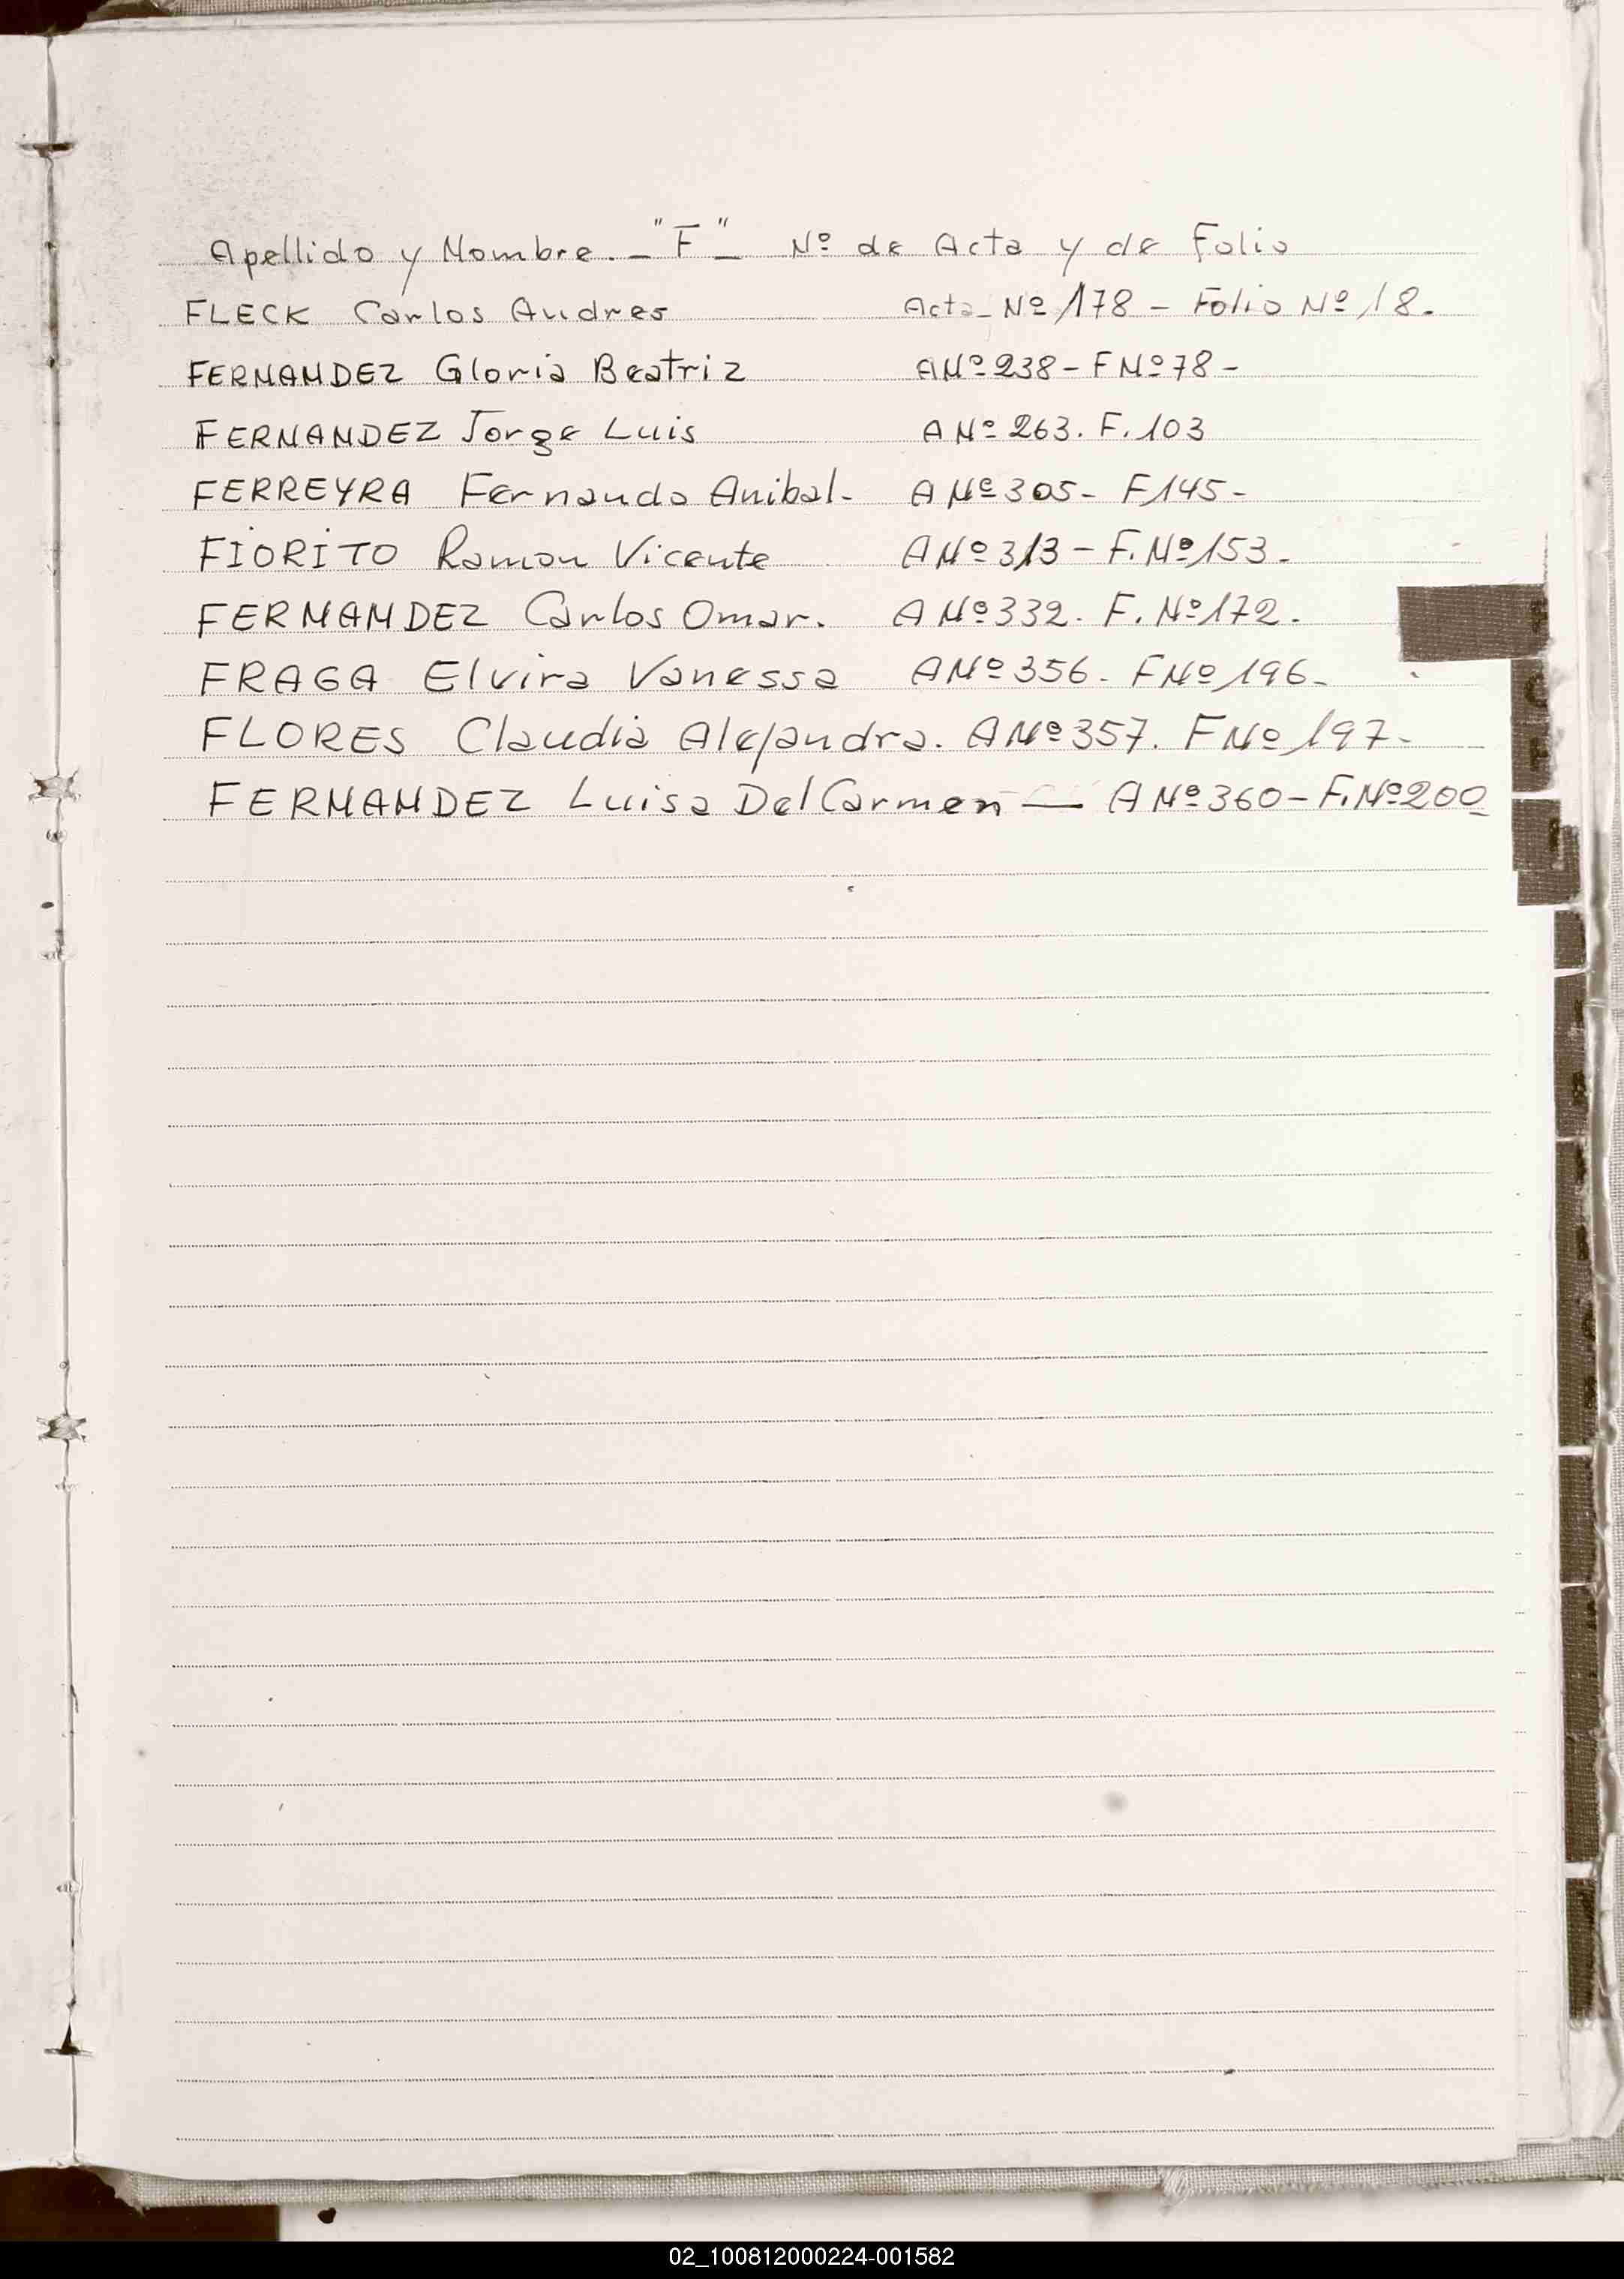 Apellido y Nombre. - "F" - Nº de Acta y de Folio
FLECK Carlos Andres Acta - Nº 178 - Folio Nº 18.
FERNANDEZ Gloria Beatriz A Nº 238 - F Nº 78 -
FERNANDEZ Jorge Luis A Nº 263. F. 103
FERREYRA Fernando Anibal - A Nº 305 - F 145 -
FIORITO Ramon Vicente A Nº 313 - F. Nº 153 -
FERNANDEZ Carlos Omar. A Nº 332. F. Nº 172.
FRAGA Elvira Vanessa A Nº 356. F Nº 196 -
FLORES Claudia Alejandra. A Nº 357. F Nº 197 -
FERNANDEZ Luisa Del Carmen — A Nº 360 - F. Nº 200
02_100812000224-001582